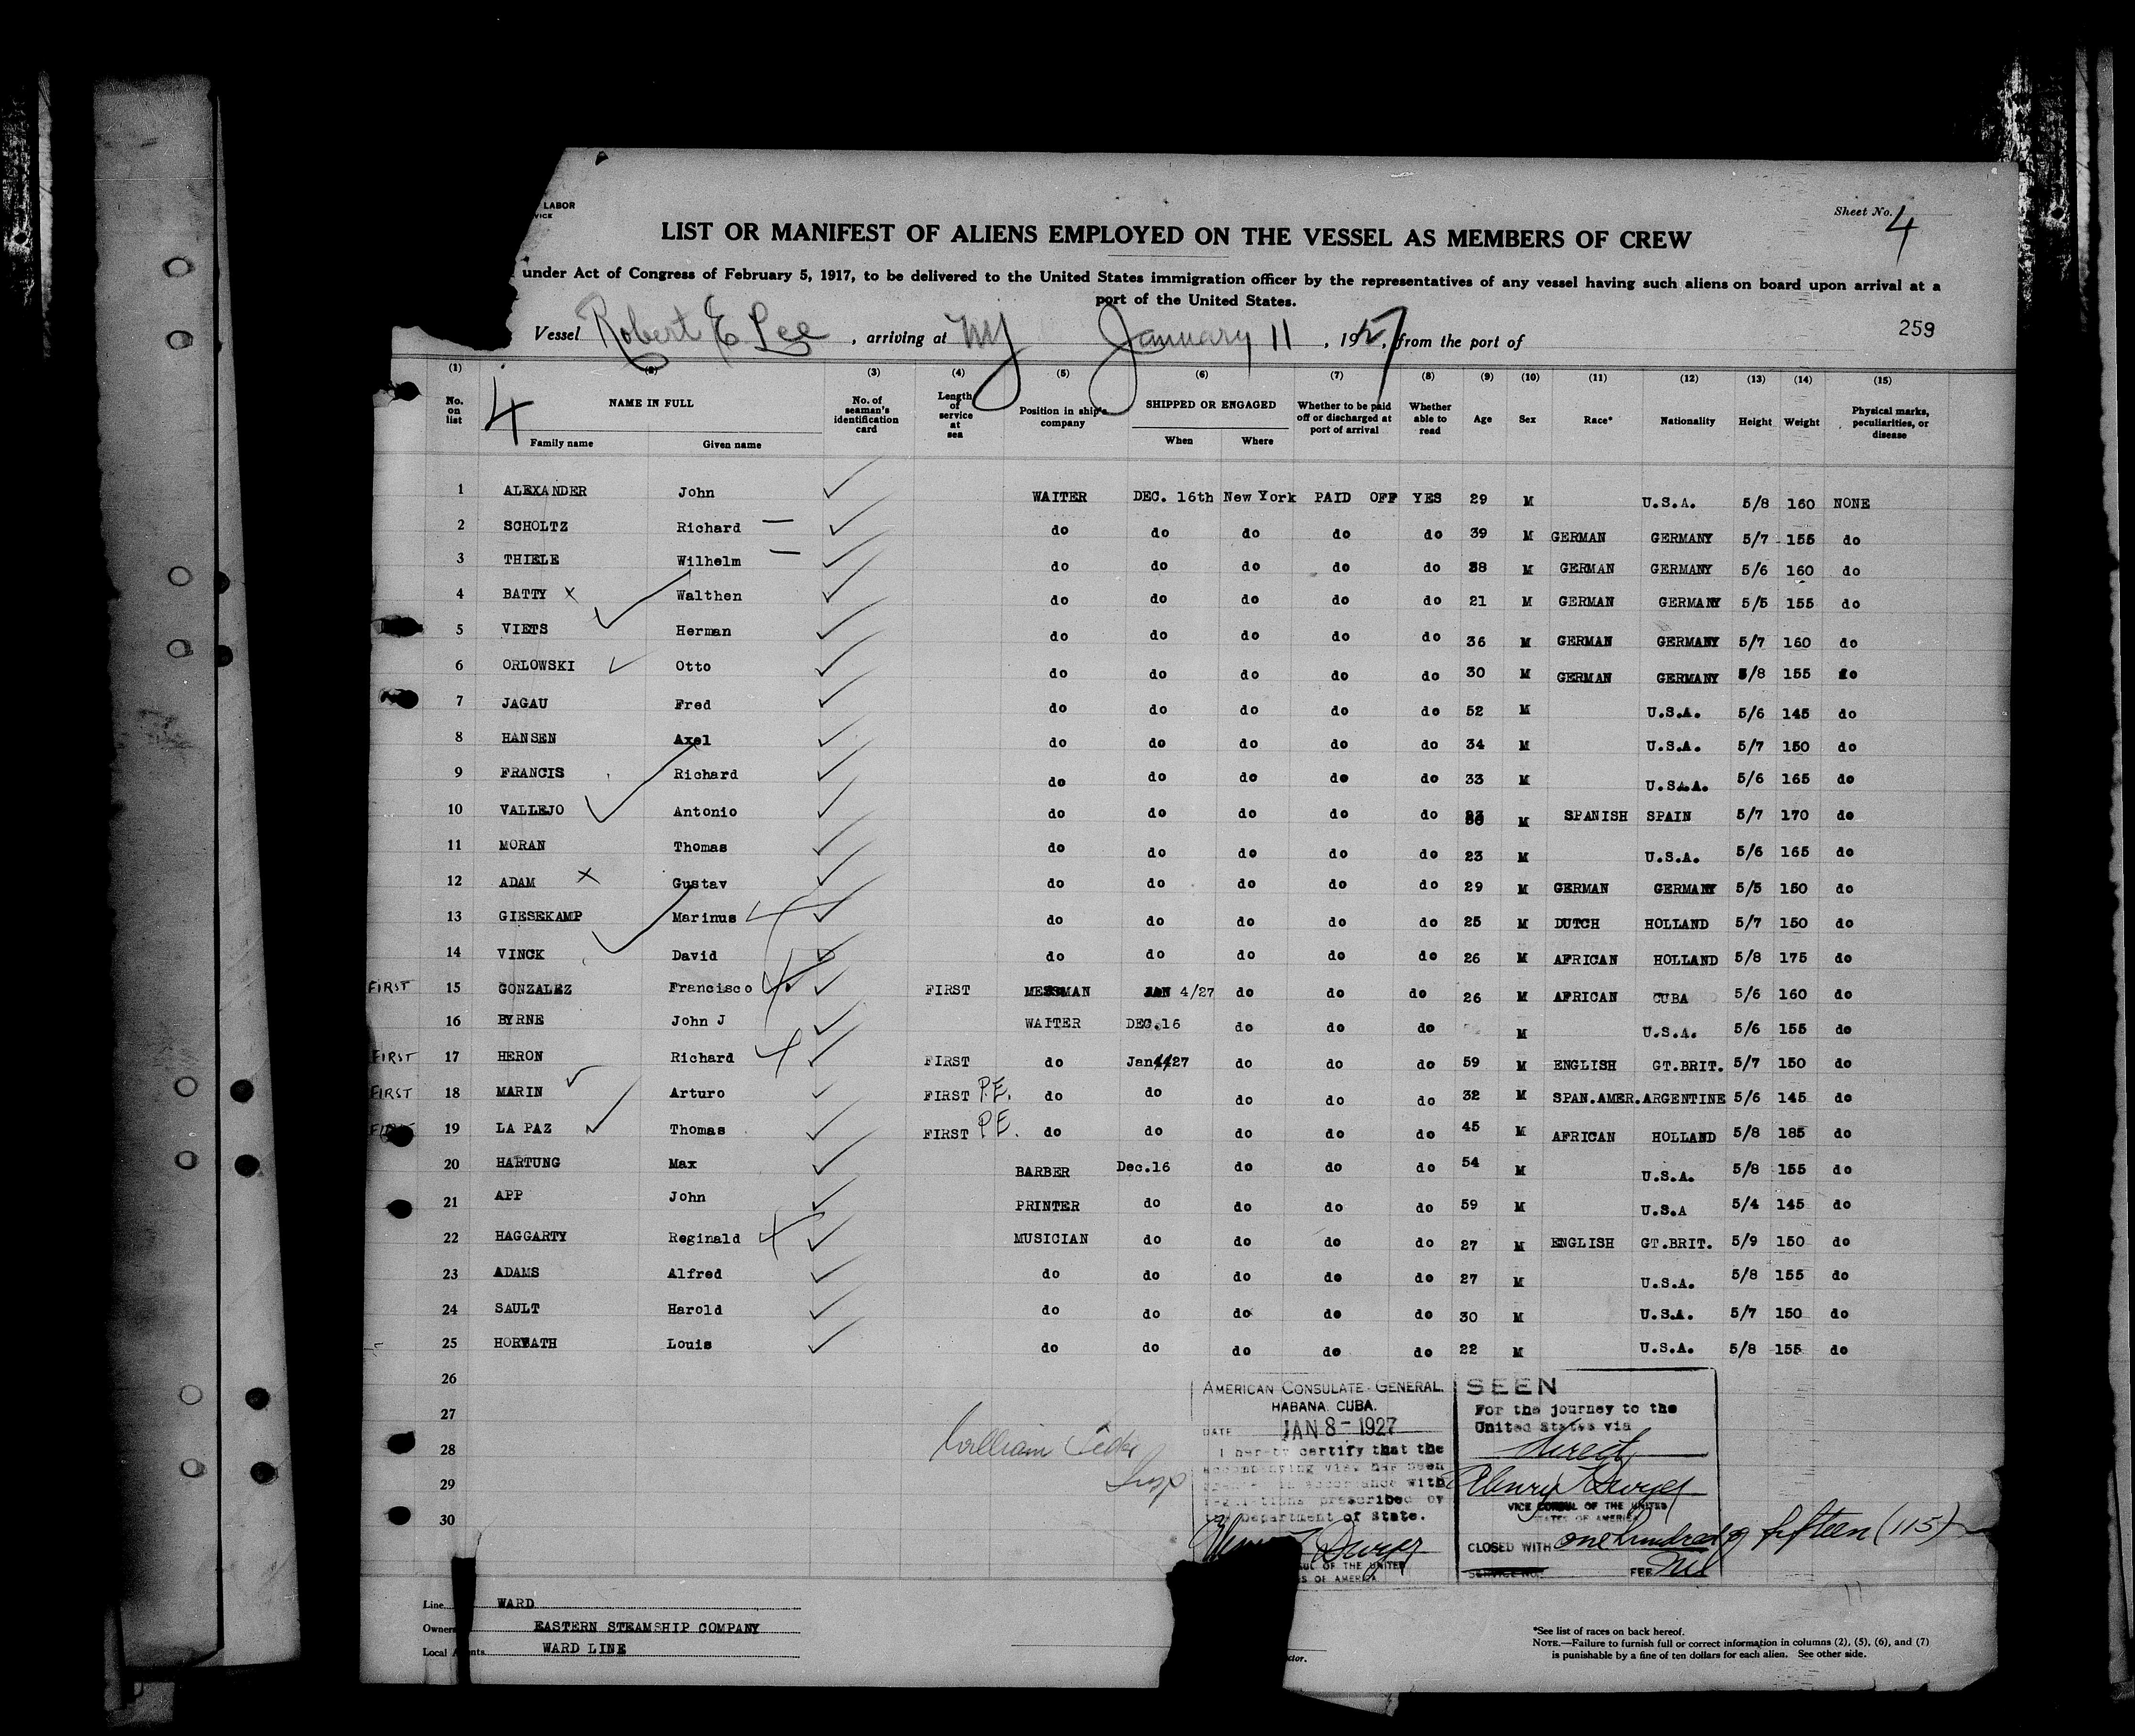 LABOR
VICE
Sheet No. 4
LIST OR MANIFEST OF ALIENS EMPLOYED ON THE VESSEL AS MEMBERS OF CREW
under Act of Congress of February 5, 1917, to be delivered to the United States immigration officer by the representatives of any vessel having such aliens on board upon arrival at a
port of the United States.
259
Vessel Robert E Lee, arriving at NY January 11, 1927, from the port of
(1) (2) (3) (4) (5) (6) (7) (8) (9) (10) (11) (12) (13) (14) (15)
4
No. on list NAME IN FULL Family name Given name No. of seaman's identification card Length of service at sea Position in ship's company SHIPPED OR ENGAGED When Where Whether to be paid off or discharged at port of arrival Whether able to read Age Sex Race* Nationality Height Weight Physical marks, peculiarities, or disease
1 ALEXANDER John WAITER DEC. 16th New York PAID OFF YES 29 M U.S.A. 5/8 160 NONE
2 SCHOLTZ Richard do do do do do 39 M GERMAN GERMANY 5/7 155 do
3 THIELE Wilhelm do do do do do 38 M GERMAN GERMANY 5/6 160 do
4 BATTY x Walthen do do do do do 21 M GERMAN GERMANY 5/5 155 do
5 VIETS Herman do do do do do 36 M GERMAN GERMANY 5/7 160 do
6 ORLOWSKI Otto do do do do do 30 M GERMAN GERMANY 5/8 155 do
7 JAGAU Fred do do do do do 52 M U.S.A. 5/6 145 do
8 HANSEN Axel do do do do do 34 M U.S.A. 5/7 150 do
9 FRANCIS Richard do do do do do 33 M U.S.A.A. 5/6 165 do
10 VALLEJO Antonio do do do do do M SPANISH SPAIN 5/7 170 do
11 MORAN Thomas do do do do do 23 M U.S.A. 5/6 165 do
12 ADAM x Gustav do do do do do 29 M GERMAN GERMANY 5/5 150 do
13 GIESEKAMP Marinus do do do do do 25 M DUTCH HOLLAND 5/7 150 do
14 VINCK David do do do do do 26 M AFRICAN HOLLAND 5/8 175 do
FIRST 15 GONZALEZ Francisco FIRST MESSMAN JAN 4/27 do do do 26 M AFRICAN CUBA 5/6 160 do
16 BYRNE John J WAITER DEC.16 do do do M U.S.A. 5/6 155 do
FIRST 17 HERON Richard FIRST do Jan 4/27 do do do 59 M ENGLISH GT.BRIT. 5/7 150 do
FIRST 18 MARIN Arturo FIRST P.E. do do do do do 32 M SPAN.AMER. ARGENTINE 5/6 145 do
FIRST 19 LA PAZ Thomas FIRST P.E. do do do do do 45 M AFRICAN HOLLAND 5/8 185 do
20 HARTUNG Max BARBER Dec.16 do do do 54 M U.S.A. 5/8 155 do
21 APP John PRINTER do do do do 59 M U.S.A 5/4 145 do
22 HAGGARTY Reginald MUSICIAN do do do do 27 M ENGLISH GT.BRIT. 5/9 150 do
23 ADAMS Alfred do do do do do 27 M U.S.A. 5/8 155 do
24 SAULT Harold do do do do do 30 M U.S.A. 5/7 150 do
25 HORVATH Louis do do do do do 22 M U.S.A. 5/8 155 do
26
27
28
29
30
AMERICAN CONSULATE-GENERAL.
HABANA. CUBA.
DATE JAN 8-1927
I hereby certify that the
accompanying visa has been
granted in accordance with
regulations prescribed by
the Department of State.
Dwyer
SUL OF THE UNITED
S OF AMERICA
William
Insp
SEEN
For the journey to the
United States via
direct
Henry Dwyer
VICE CONSUL OF THE UNITED
STATES OF AMERICA
CLOSED WITH one hundred & fifteen (115)
SERVICE NO. FEE Nil
Line WARD
Owners EASTERN STEAMSHIP COMPANY
Local Agents WARD LINE
ctor.
*See list of races on back hereof.
NOTE.—Failure to furnish full or correct information in columns (2), (5), (6), and (7)
is punishable by a fine of ten dollars for each alien. See other side.